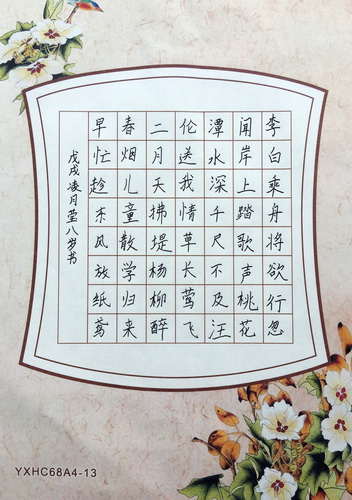 李白乘舟将欲行忽
闻岸上踏歌声桃花
潭水深千尺不及汪
伦送我情草长莺飞
二月天拂堤杨柳醉
春烟儿童散学归来
早忙趁东风放纸鸢
戊戌凌月莹八岁书
YXHC68A4-13